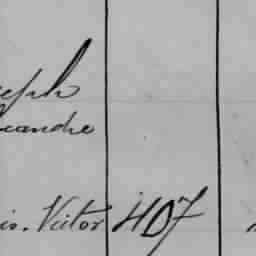 eph
candre
is. Victor 407